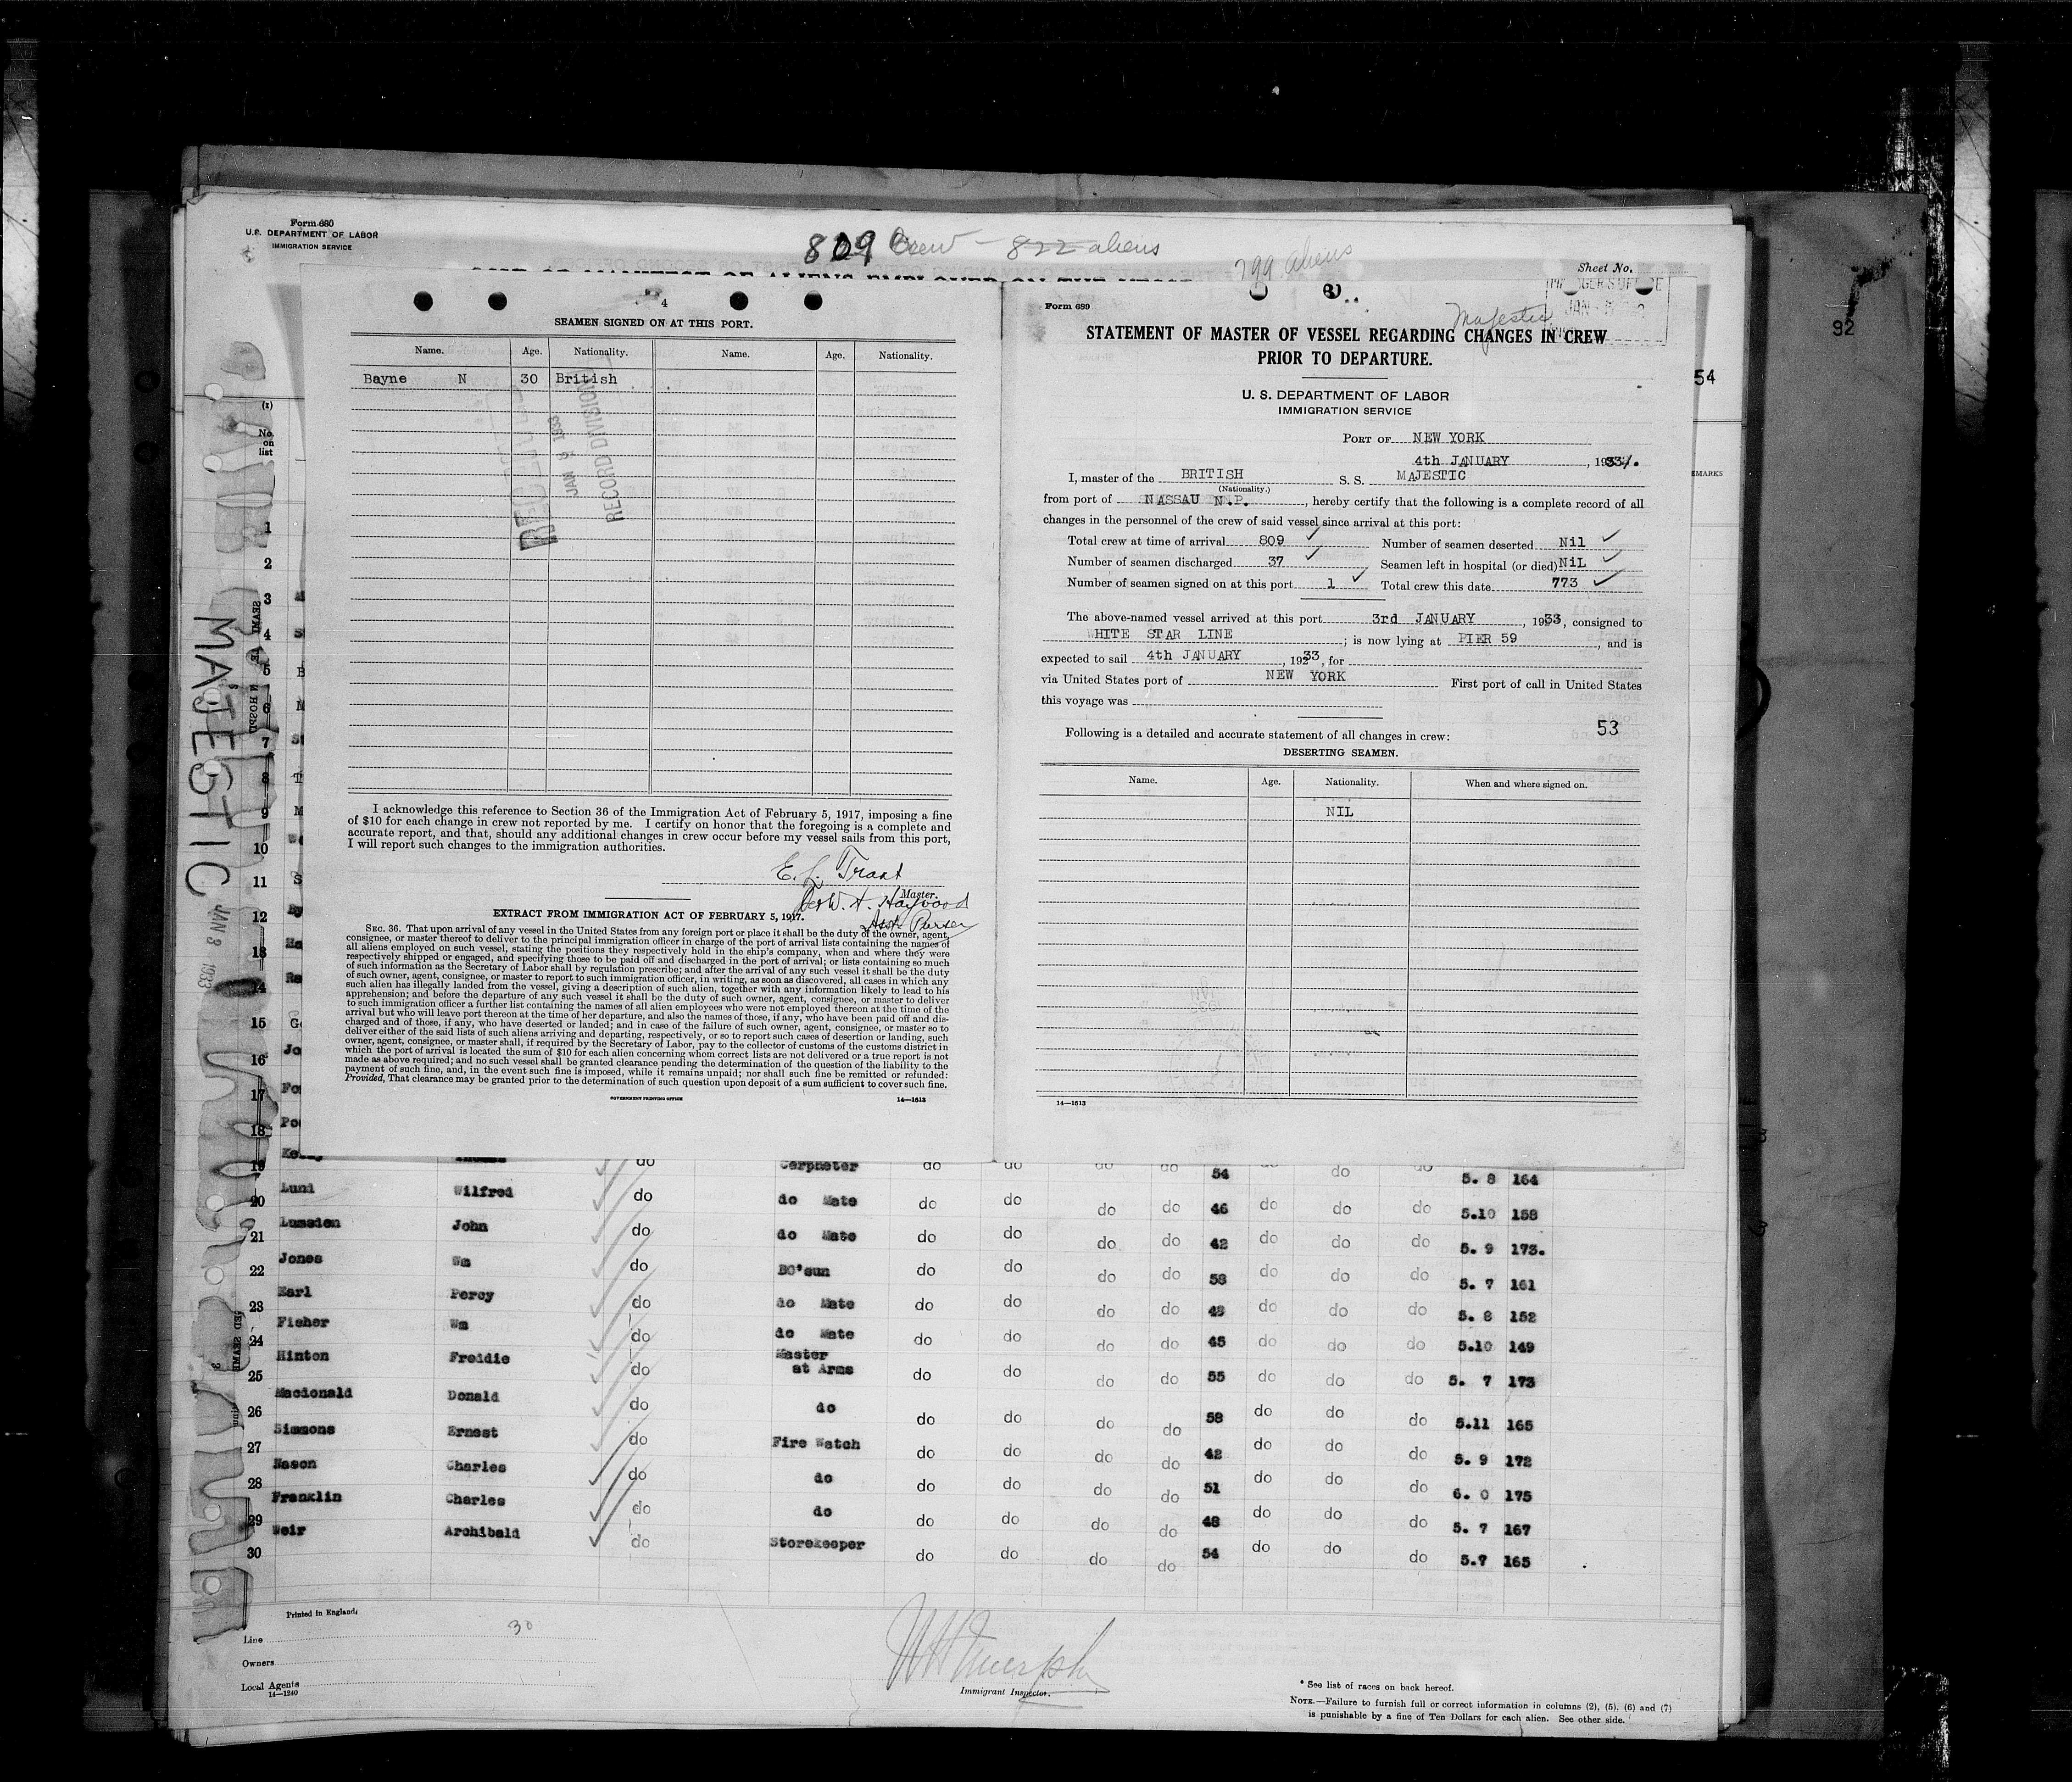 Form 680
U.S. DEPARTMENT OF LABOR
IMMIGRATION SERVICE
809 Crew - 822 aliens
799 aliens
Sheet No.
92
54
4
SEAMEN SIGNED ON AT THIS PORT.
Name. Age. Nationality. Name. Age. Nationality.
Bayne N 30 British
JAN 8 1933
RECORD DIVISION
I acknowledge this reference to Section 36 of the Immigration Act of February 5, 1917, imposing a fine
of $10 for each change in crew not reported by me. I certify on honor that the foregoing is a complete and
accurate report, and that, should any additional changes in crew occur before my vessel sails from this port,
I will report such changes to the immigration authorities.
E. L. Trant
Master.
per W. H. Haywood
Asst Purser
EXTRACT FROM IMMIGRATION ACT OF FEBRUARY 5, 1917.
SEC. 36. That upon arrival of any vessel in the United States from any foreign port or place it shall be the duty of the owner, agent,
consignee, or master thereof to deliver to the principal immigration officer in charge of the port of arrival lists containing the names of
all aliens employed on such vessel, stating the positions they respectively hold in the ship's company, when and where they were
respectively shipped or engaged, and specifying those to be paid off and discharged in the port of arrival; or lists containing so much
of such information as the Secretary of Labor shall by regulation prescribe; and after the arrival of any such vessel it shall be the duty
of such owner, agent, consignee, or master to report to such immigration officer, in writing, as soon as discovered, all cases in which any
such alien has illegally landed from the vessel, giving a description of such alien, together with any information likely to lead to his
apprehension; and before the departure of any such vessel it shall be the duty of such owner, agent, consignee, or master to deliver
to such immigration officer a further list containing the names of all alien employees who were not employed thereon at the time of the
arrival but who will leave port thereon at the time of her departure, and also the names of those, if any, who have been paid off and dis-
charged and of those, if any, who have deserted or landed; and in case of the failure of such owner, agent, consignee, or master so to
deliver either of the said lists of such aliens arriving and departing, respectively, or so to report such cases of desertion or landing, such
owner, agent, consignee, or master shall, if required by the Secretary of Labor, pay to the collector of customs of the customs district in
which the port of arrival is located the sum of $10 for each alien concerning whom correct lists are not delivered or a true report is not
made as above required; and no such vessel shall be granted clearance pending the determination of the question of the liability to the
payment of such fine, and, in the event such fine is imposed, while it remains unpaid; nor shall such fine be remitted or refunded:
Provided, That clearance may be granted prior to the determination of such question upon deposit of a sum sufficient to cover such fine.
GOVERNMENT PRINTING OFFICE 14—1613
Form 689
Majestic
STATEMENT OF MASTER OF VESSEL REGARDING CHANGES IN CREW
PRIOR TO DEPARTURE.
U. S. DEPARTMENT OF LABOR
IMMIGRATION SERVICE
PORT OF NEW YORK
4th JANUARY, 1933.
I, master of the BRITISH S. S. MAJESTIC
(Nationality.)
from port of NASSAU N.P., hereby certify that the following is a complete record of all
changes in the personnel of the crew of said vessel since arrival at this port:
Total crew at time of arrival 809 Number of seamen deserted Nil
Number of seamen discharged 37 Seamen left in hospital (or died) NiL
Number of seamen signed on at this port 1 Total crew this date 773
The above-named vessel arrived at this port 3rd JANUARY, 1933, consigned to
WHITE STAR LINE; is now lying at PIER 59, and is
expected to sail 4th JANUARY, 1933, for
via United States port of NEW YORK First port of call in United States
this voyage was
53
Following is a detailed and accurate statement of all changes in crew:
DESERTING SEAMEN.
Name. Age. Nationality. When and where signed on.
NIL
14—1613
MAJESTIC
JAN 8 1933
(1)
No.
on
list
1
2
3
4
5
6
7
8
9
10
11
12
13
14
15
16
17
18
19 do Carpenter do do do do 54 do do do 5. 8 164
20 Lund Wilfred do do Mate do do do do 46 do do do 5.10 158
21 Lumsden John do do Mate do do do do 42 do do do 5. 9 173.
22 Jones Wm do BO'sun do do do do 58 do do do 5. 7 161
23 Earl Percy do do Mate do do do do 49 do do do 5. 8 152
24 Fisher Wm do do Mate do do do do 45 do do do 5.10 149
25 Hinton Freddie do Master at Arms do do do do 55 do do do 5. 7 173
26 Macdonald Donald do do do do do do 58 do do do 5.11 165
27 Simmons Ernest do Fire Watch do do do do 42 do do do 5. 9 172
28 Nason Charles do do do do do do 51 do do do 6. 0 175
29 Franklin Charles do do do do do do 48 do do do 5. 7 167
30 Weir Archibald do Storekeeper do do do do 54 do do do 5.7 165
Printed in England
30
Line
Owners
Local Agents
14—1240
Immigrant Inspector.
* See list of races on back hereof.
NOTE.—Failure to furnish full or correct information in columns (2), (5), (6) and (7)
is punishable by a fine of Ten Dollars for each alien. See other side.